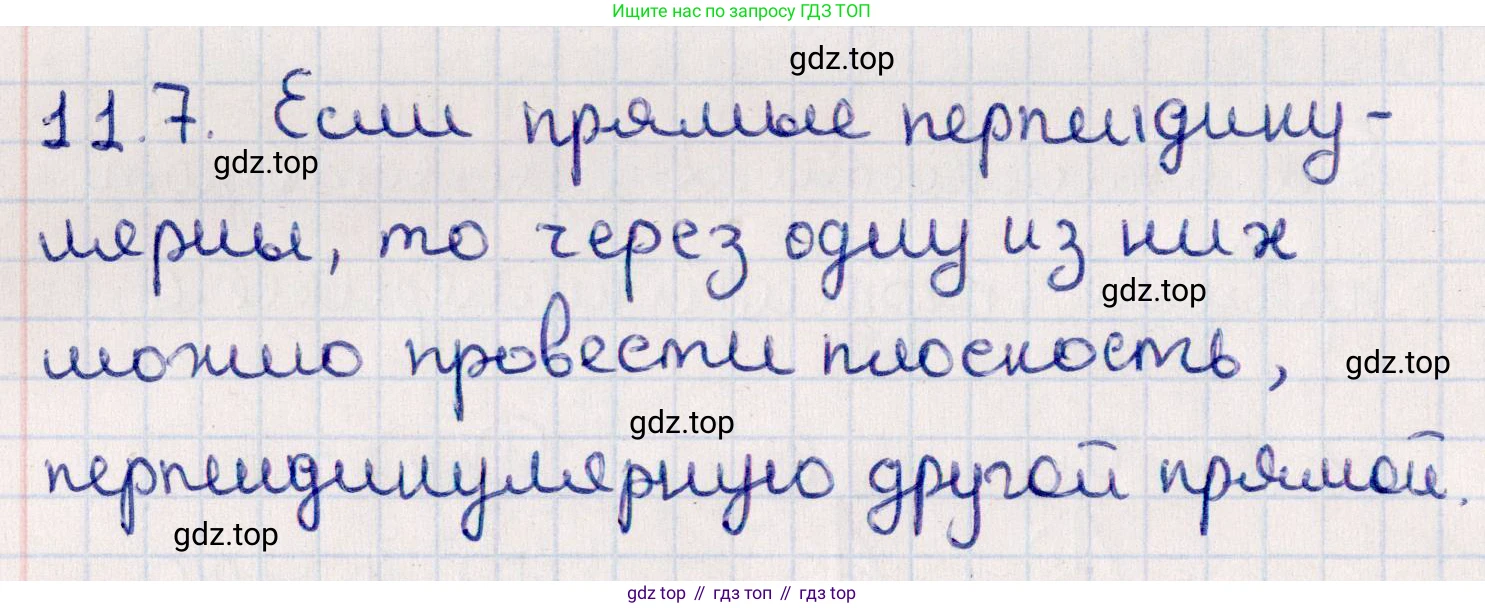 Ищите нас по запросу ГДЗ ТОП
gdz.top
11.7. Если прямые перпендику-
gdz.top
лярны, то через одну из них
gdz.top
можно провести плоскость,
gdz.top
gdz.top
перпендикулярную другой прямой.
gdz.top
gdz top // гдз топ // гдз top